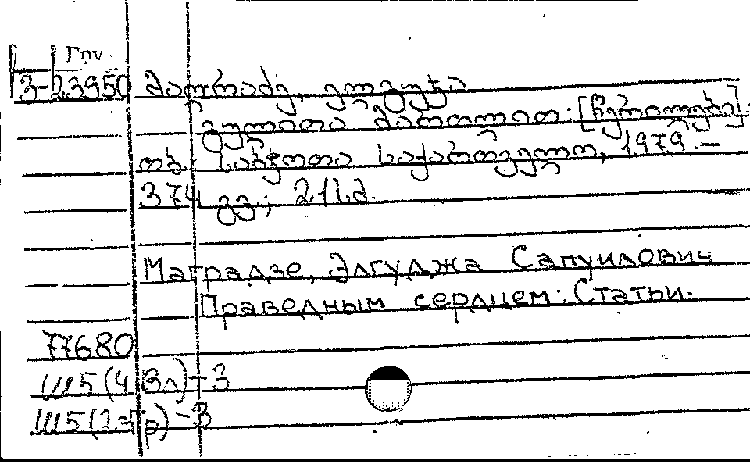 Гру
З-23950 მაღრაძე, ელგუჯა
გულითა მართლით: [წერილები].
თბ.: საბჭოთა საქართველო, 1979.—
374 გვ.; 21 სმ.
Маградзе, Элгуджа Сапуилович
Праведным сердцем: Статьи.
77680
Ш5(4Вл)-3
Ш5(2=Гр)-3